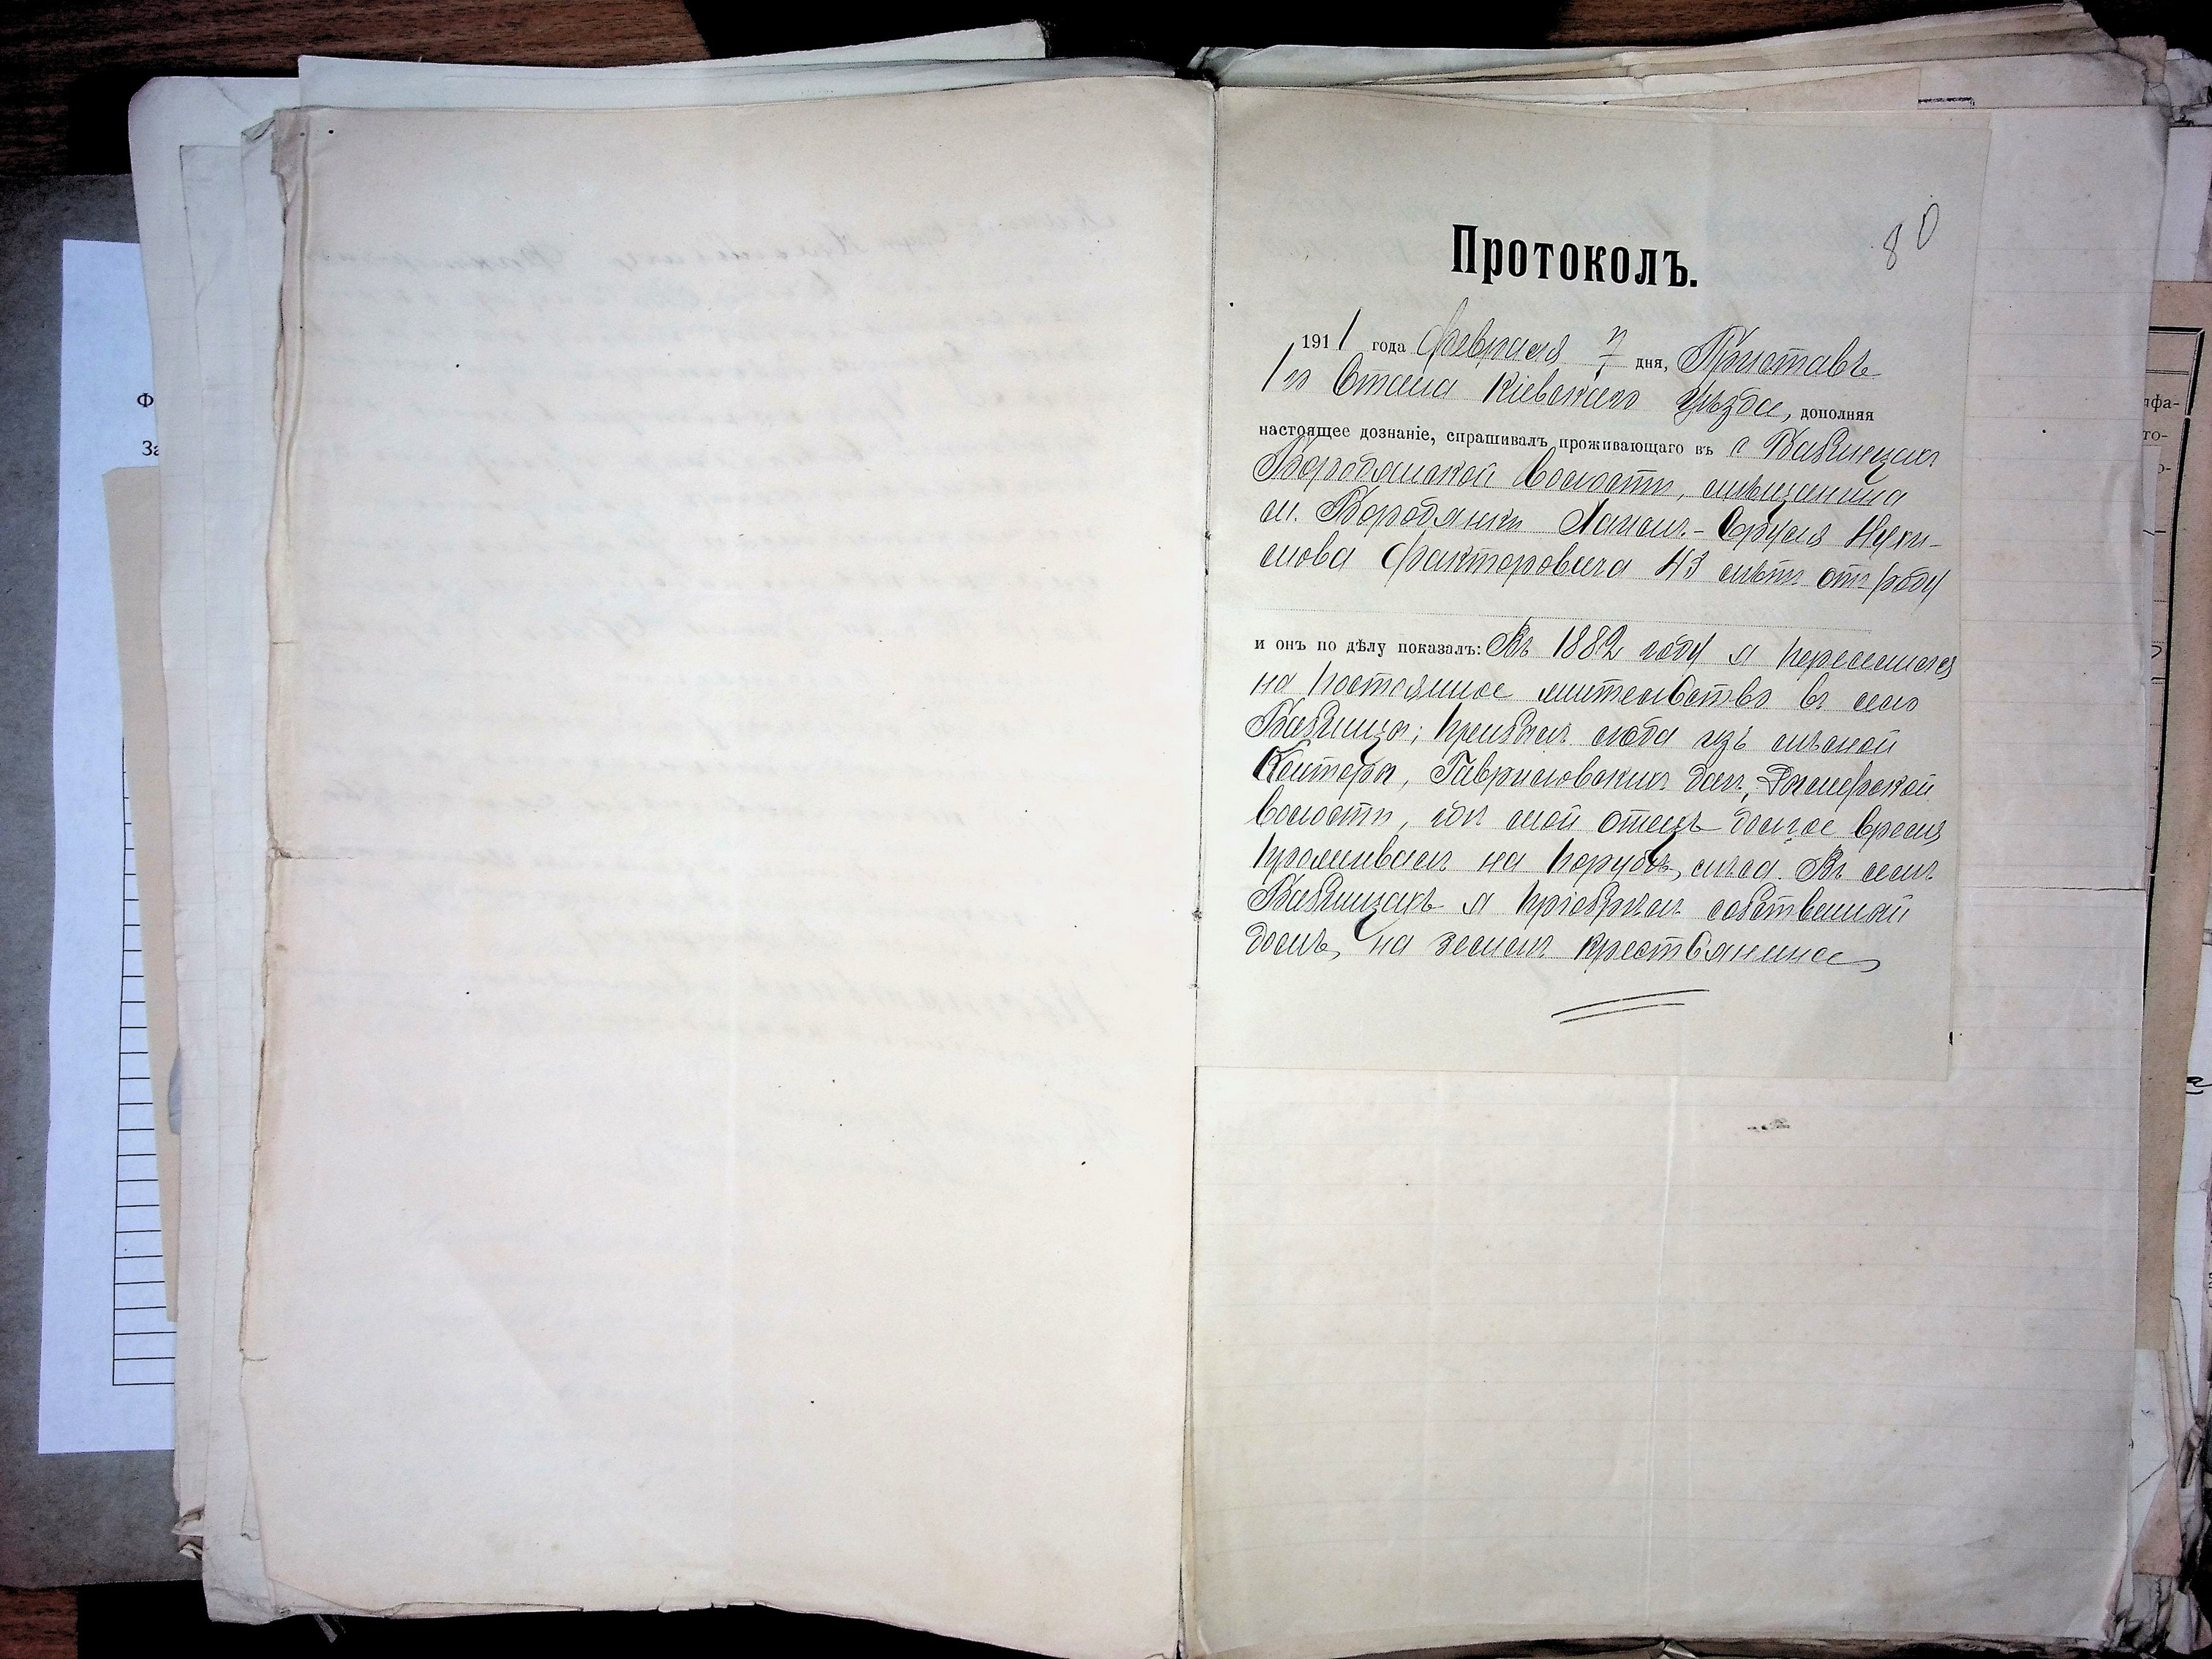 80
Протоколъ.
1911 года Февраля 7 дня, Приставъ
1 го Стана Кіевскаго уѣзда, дополняя
настоящее дознаніе, спрашивалъ проживающаго въ с Бабинцахъ
Бородянской волости, мѣщанина
м. Бородянки Хаим.-Сруля Нухи-
мова Факторовича 43 лѣтъ отъ роду
и онъ по дѣлу показалъ: Въ 1882 году я переселился
на постоянное жительство въ село
Бабинцы; прибылъ сюда изъ лѣсной
Конторы, Гавриловскихъ дачъ, Дымерской
волости, гдѣ мой отецъ долгое время
проживалъ на порубкѣ лѣса. Въ селѣ
Бабинцахъ я пріобрѣлъ собственный
домъ, на землѣ крестьянина